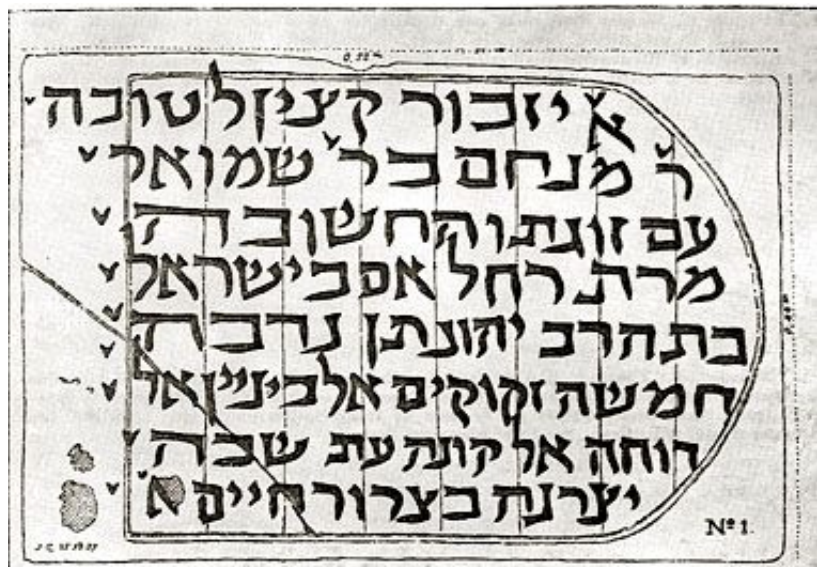 א יזכור קצין לטובה
ר' מנחם בר' שמואל
עם זוגתו החשובה
מרת רחל אם בישראל
בת הרב יהונתן נדבה
חמשה זקוקים אל ביניין אל
רוחה אל קונה עת שבה
יצרנה בצרור חיים א'
Nº 1.